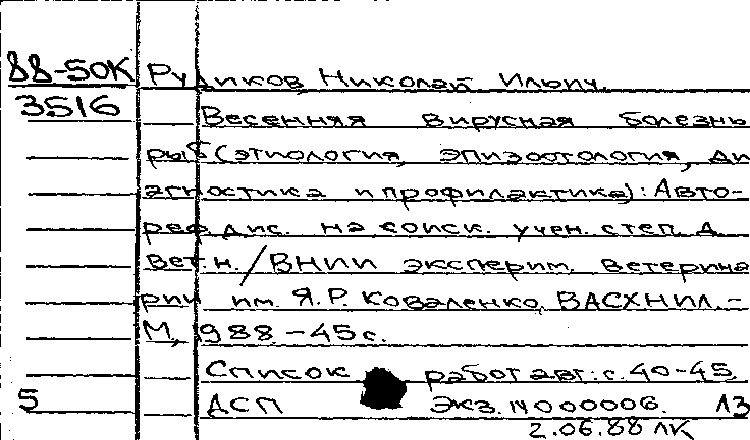 88-50К Рудиков, Николай Ильич.
3516 Весенняя вирусная болезнь
рыб (этиология, эпизоотология, ди
агностика и профилактика): Авто-
реф. дис. на соиск. учен. степ. д.
вет. н. / ВНИИ эксперим. ветерина
рии им. Я.Р. Коваленко, ВАСХНИЛ. -
М., 1988 - 45 с.
Список работ авт.: с. 40-45
5 ДСП Экз. N 000006.
2.06.88 ЛК